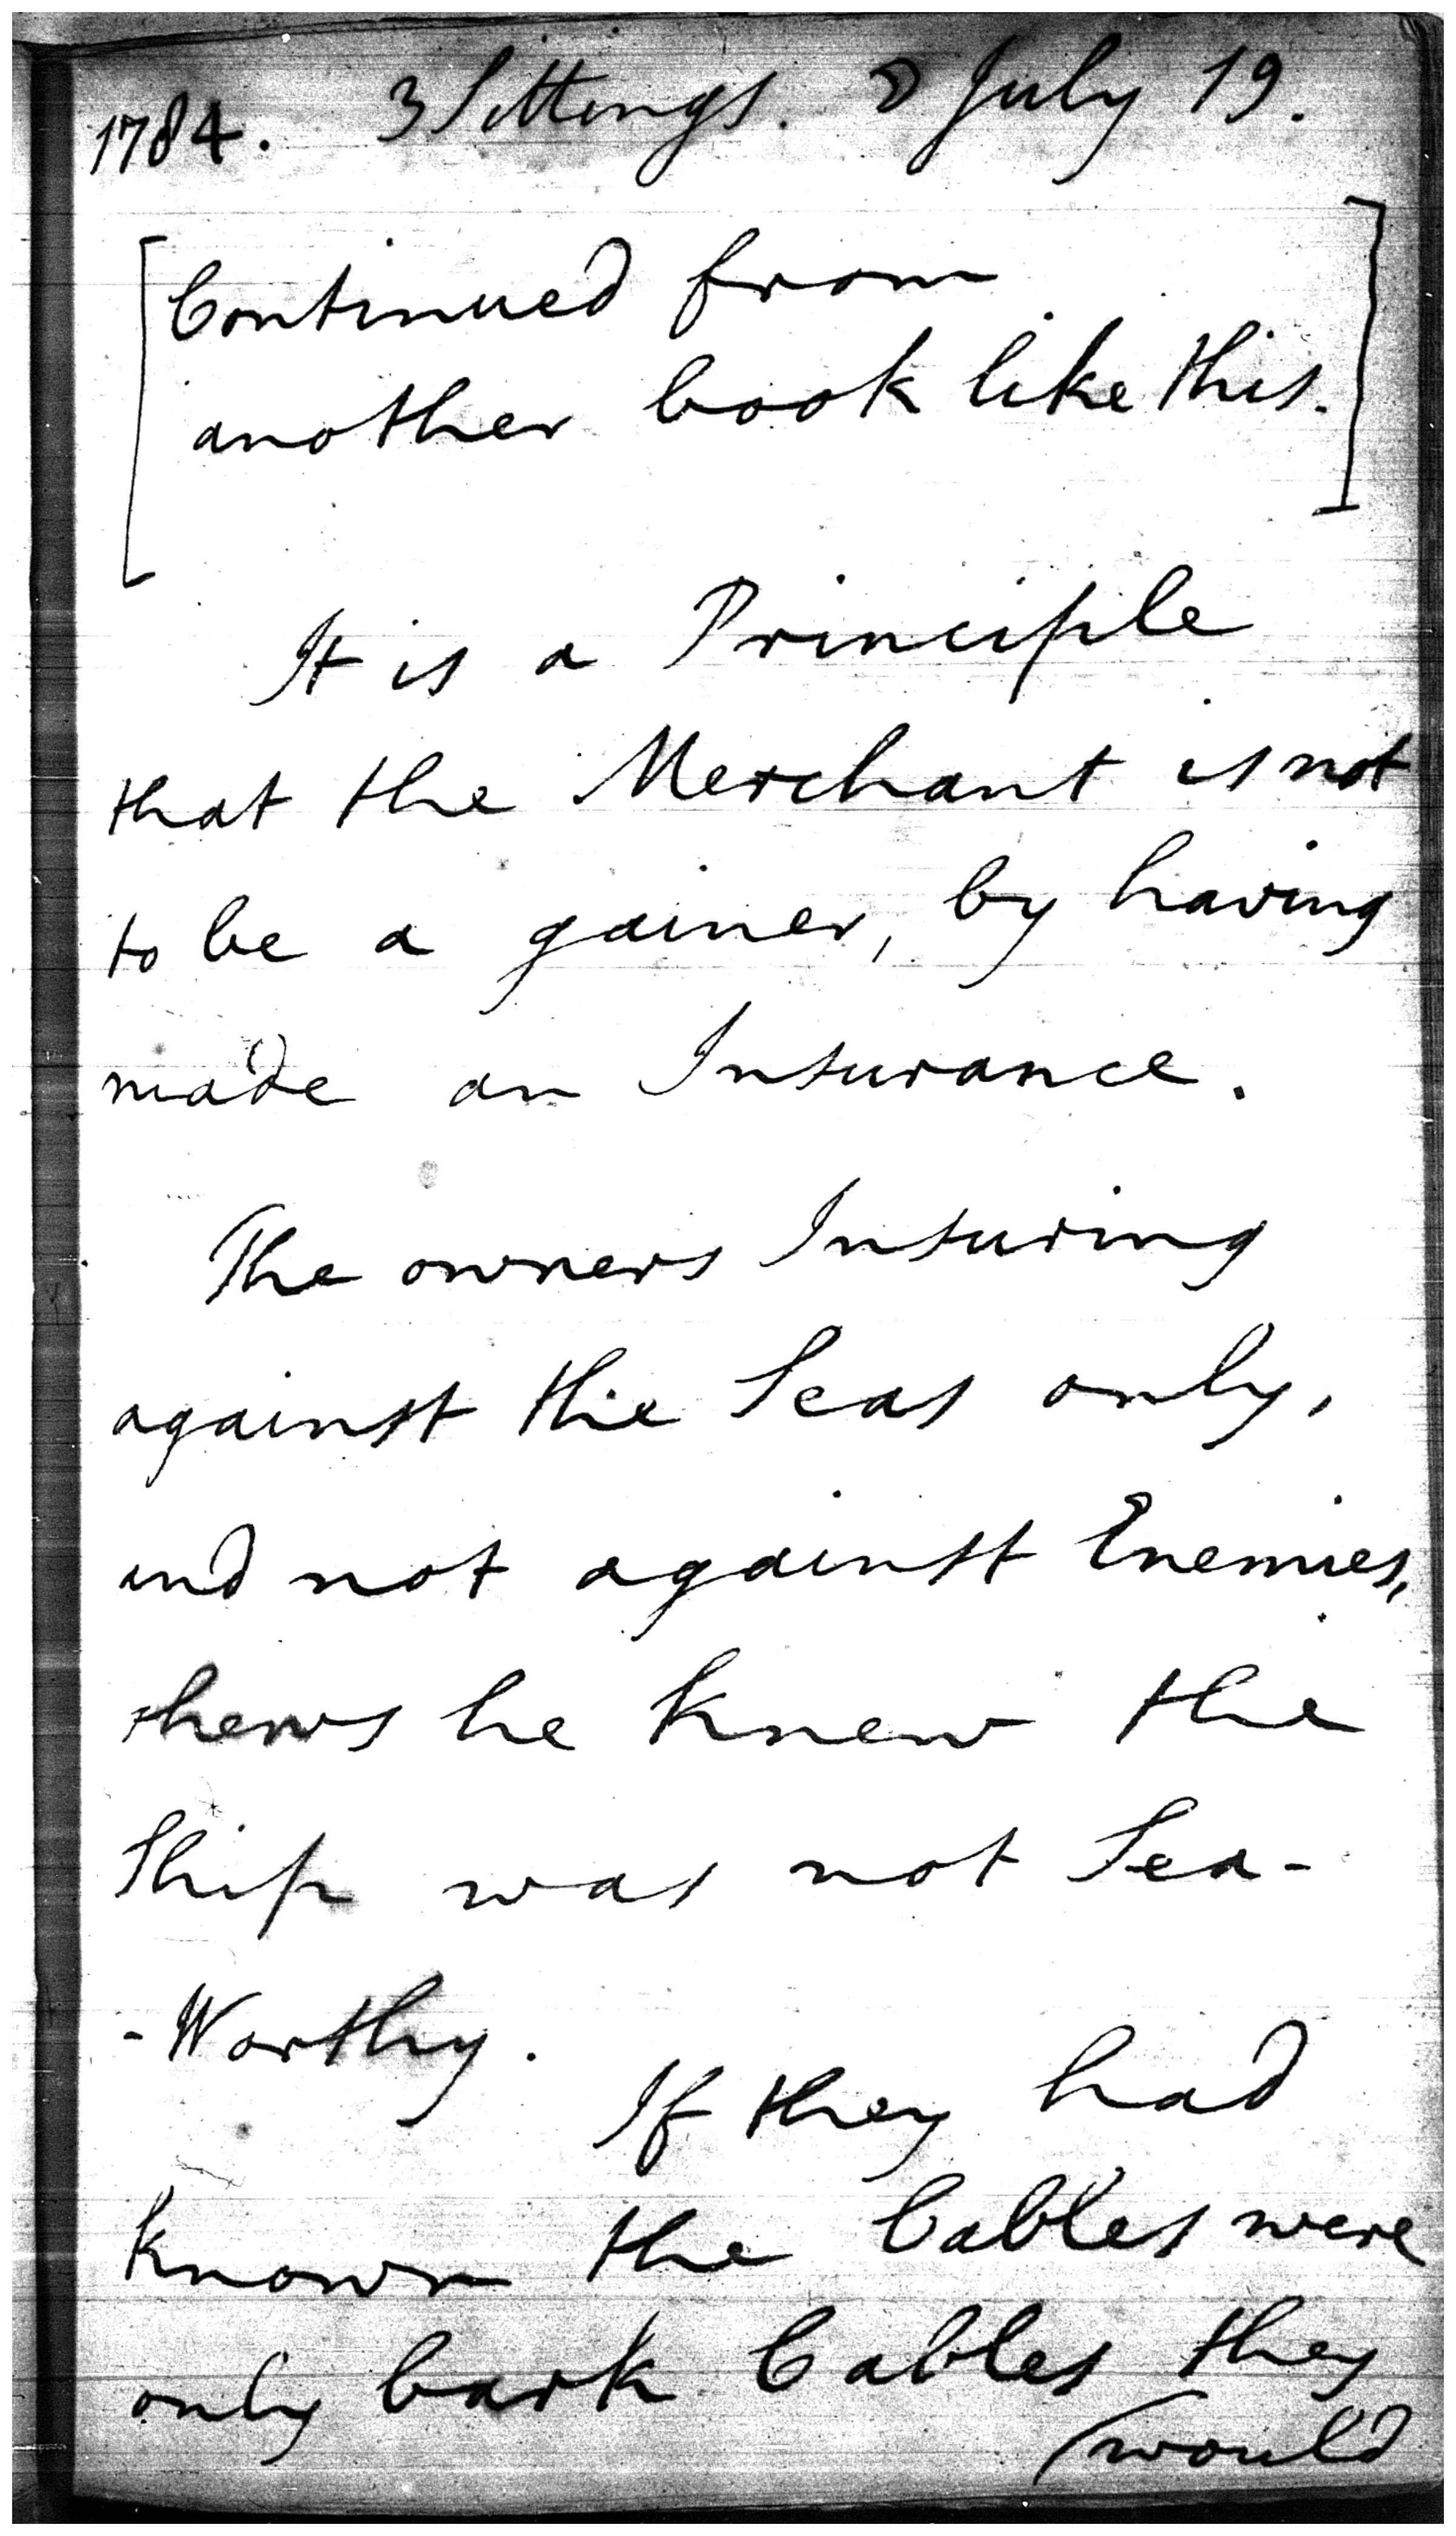 1784. 3 Sittings. July 19.
[Continued from
another book like this.]
It is a Principle
that the Merchant is not
to be a gainer, by having
made an Insurance.
The owners Insuring
against the Seas only,
and not against Enemies,
shews he knew the
Ship was not Sea-
-Worthy.
If they had
known the Cables were
only bark Cables they
(would